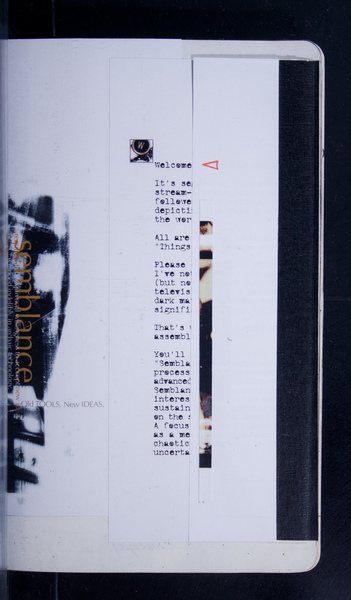 semblance
Old TOOLS, New IDEAS.
W
Welcome
It's se
stream-
followe
depicti
the wor
All are
"Things
Please
I've no
(but no
televis
dark ma
signifi
That's
assembl
You'll
"Sembla
process
advanced
Semblan
interes
sustain
on the
A focus
as a me
chaotic
uncerta